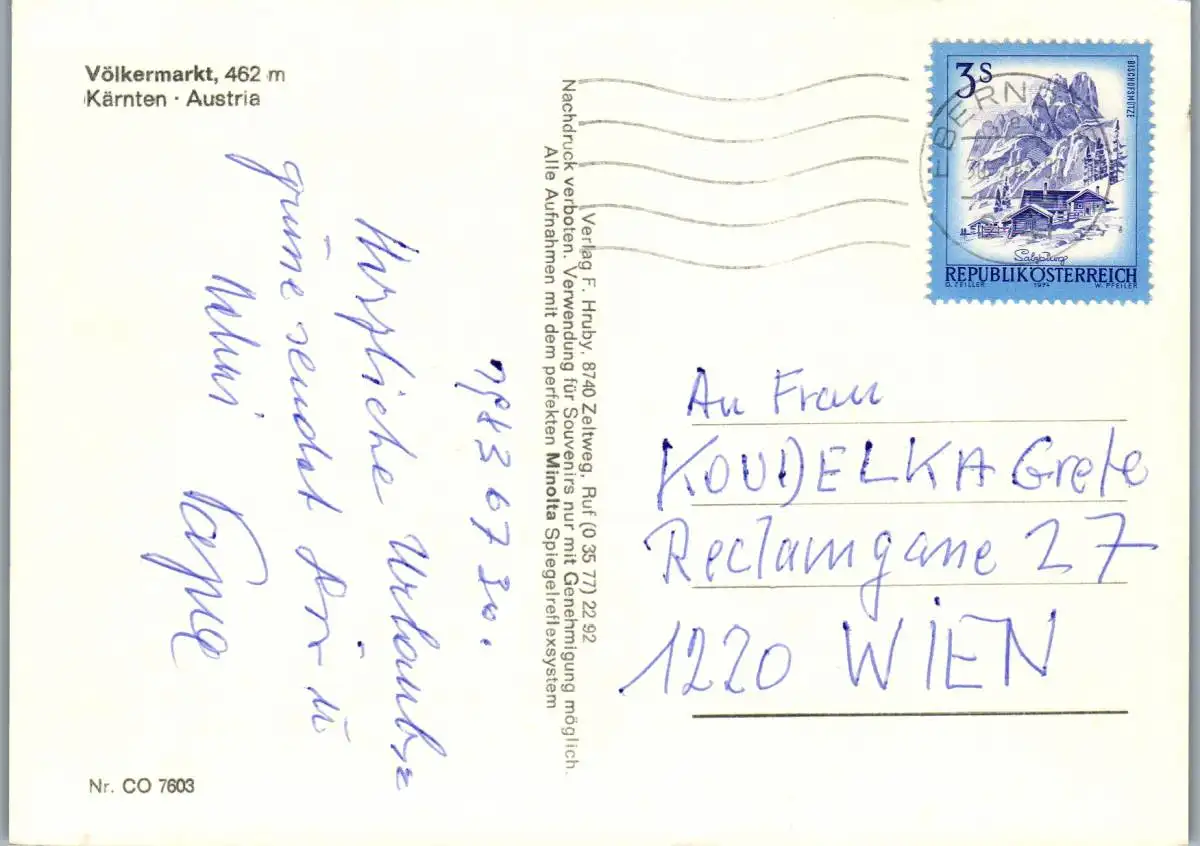 Völkermarkt, 462 m
Kärnten · Austria
Herzliche Urlaubs
grüsse sendet Dir u.
Nr. CO 7603
Verlag F. Hruby, 8740 Zeltweg, Ruf (0 35 77) 22 92
Nachdruck verboten. Verwendung für Souvenirs nur mit Genehmigung möglich.
Alle Aufnahmen mit dem perfekten Minolta Spiegelreflexsystem
EBERN
3S
BISCHOFSMÜTZE
Salzburg
REPUBLIK ÖSTERREICH
O. ZEILLER 1974 W. PFEILER
An Frau
KOUDELKA Grete
Reclamgasse 27
1220 WIEN